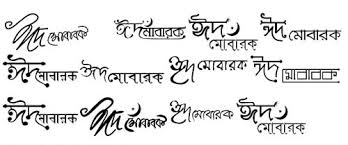 ঈদ মোবারক ঈদ মোবারক ঈদ মোবারক ঈদ মোবারক
ঈদ মোবারক ঈদ মোবারক ঈদ মোবারক ঈদ মোবারক
ঈদ মোবারক ঈদ মোবারক ঈদ মোবারক ঈদ মোবারক